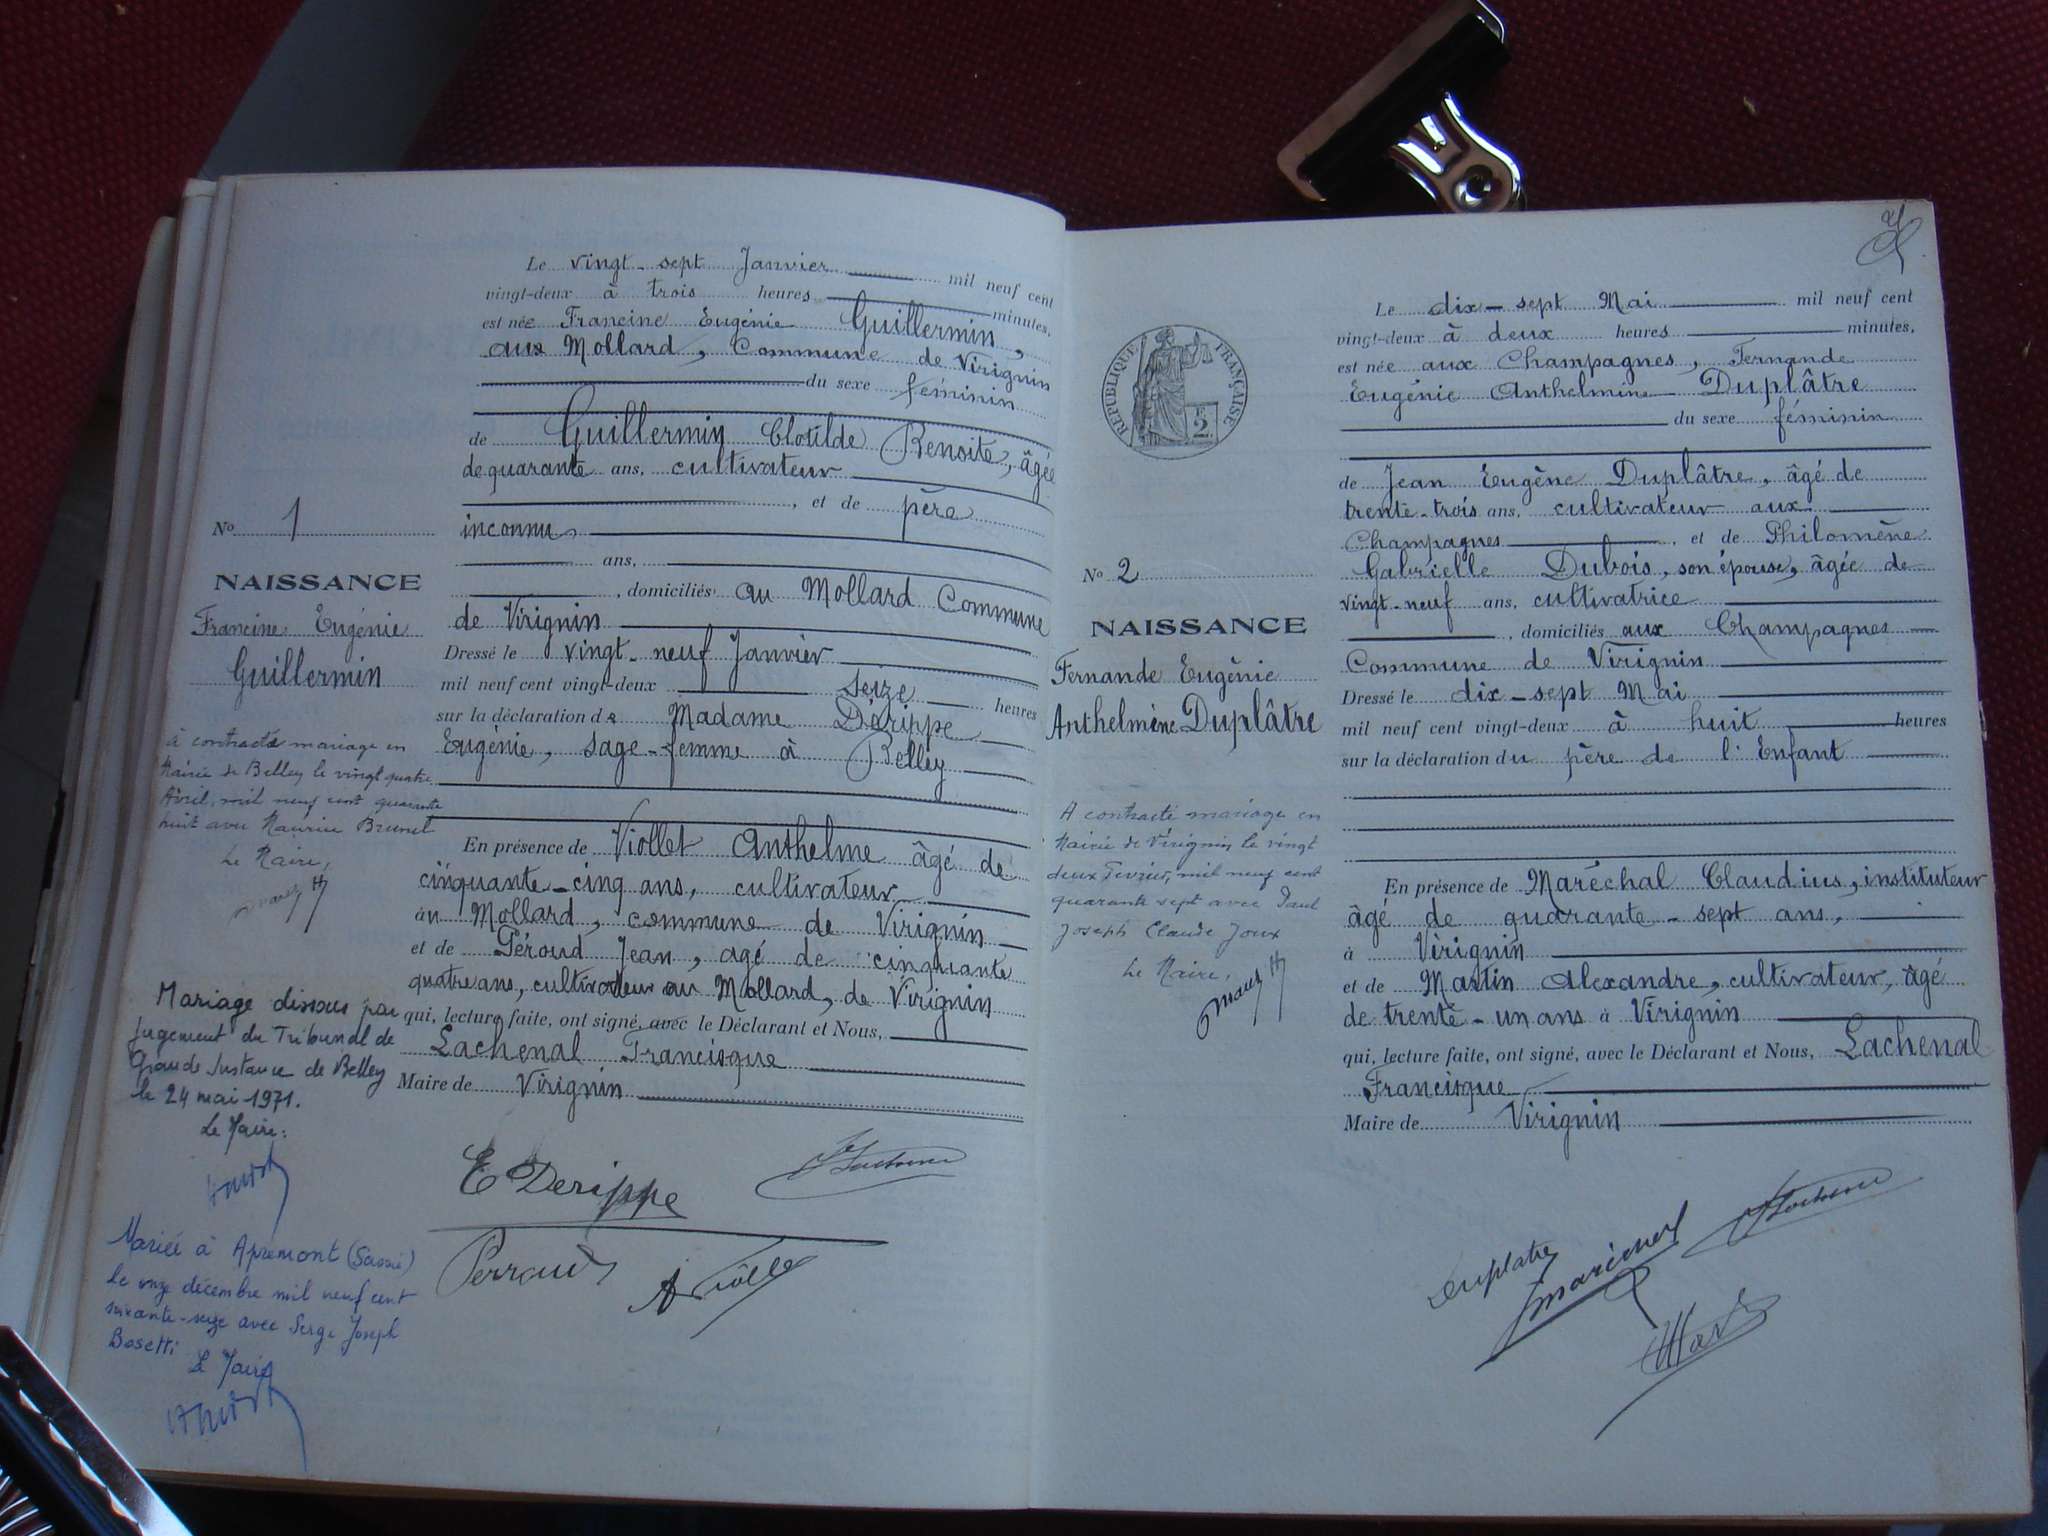 Le vingt-sept Janvier mil neuf cent
vingt-deux à trois heures minutes,
est née Francine Eugénie Guillermin,
aux Mollard, Commune de Virignin
du sexe féminin
de Guillermin Clotilde Benoite, âgée
de quarante ans, cultivateur
, et de père
inconnu
ans,
, domiciliés au Mollard Commune
de Virignin
Dressé le vingt-neuf Janvier
mil neuf cent vingt-deux seize heures
sur la déclaration de Madame Dérippe
Eugénie, sage-femme à Belley
En présence de Viollet Anthelme âgé de
cinquante-cinq ans, cultivateur
au Mollard, commune de Virignin
et de Péroud Jean, agé de cinquante
quatre ans, cultivateur au Mollard, de Virignin
qui, lecture faite, ont signé, avec le Déclarant et Nous,
Lachenal Francisque
Maire de Virignin
E Derippe
Perraud
A Violle
No 1
NAISSANCE
Francine Eugénie
Guillermin
à contracté mariage en
Mairie de Belley le vingt quatre
Avril, mil neuf cent quarante
huit avec Maurice Brunet
Le Maire,
Mariage dissous par
jugement du Tribunal de
Grande Instance de Belley
le 24 mai 1971.
Le Maire:
Mariée à Apremont (Savoie)
le onze décembre mil neuf cent
soixante-seize avec Serge Joseph
Bosetti
Le Maire
2
RÉPUBLIQUE FRANÇAISE
2
Le dix-sept Mai mil neuf cent
vingt-deux à deux heures minutes,
est née aux Champagnes, Fernande
Eugénie Anthelmine Duplâtre
du sexe féminin
de Jean Eugène Duplâtre, âgé de
trente-trois ans, cultivateur aux
Champagnes , et de Philomène
Gabrielle Dubois, son épouse, âgée de
vingt-neuf ans, cultivatrice
, domiciliés aux Champagnes
Commune de Virignin
Dressé le dix-sept Mai
mil neuf cent vingt-deux à huit heures
sur la déclaration du père de l'Enfant
En présence de Maréchal Claudius, instituteur
âgé de quarante-sept ans,
à Virignin
et de Martin Alexandre, cultivateur, âgé
de trente-un ans à Virignin
qui, lecture faite, ont signé, avec le Déclarant et Nous, Lachenal
Francisque
Maire de Virignin
Duplatre
No 2
NAISSANCE
Fernande Eugénie
Anthelmine Duplâtre
A contracté mariage en
Mairie de Virignin le vingt
deux Février, mil neuf cent
quarante sept avec Paul
Joseph Claude Joux
Le Maire,